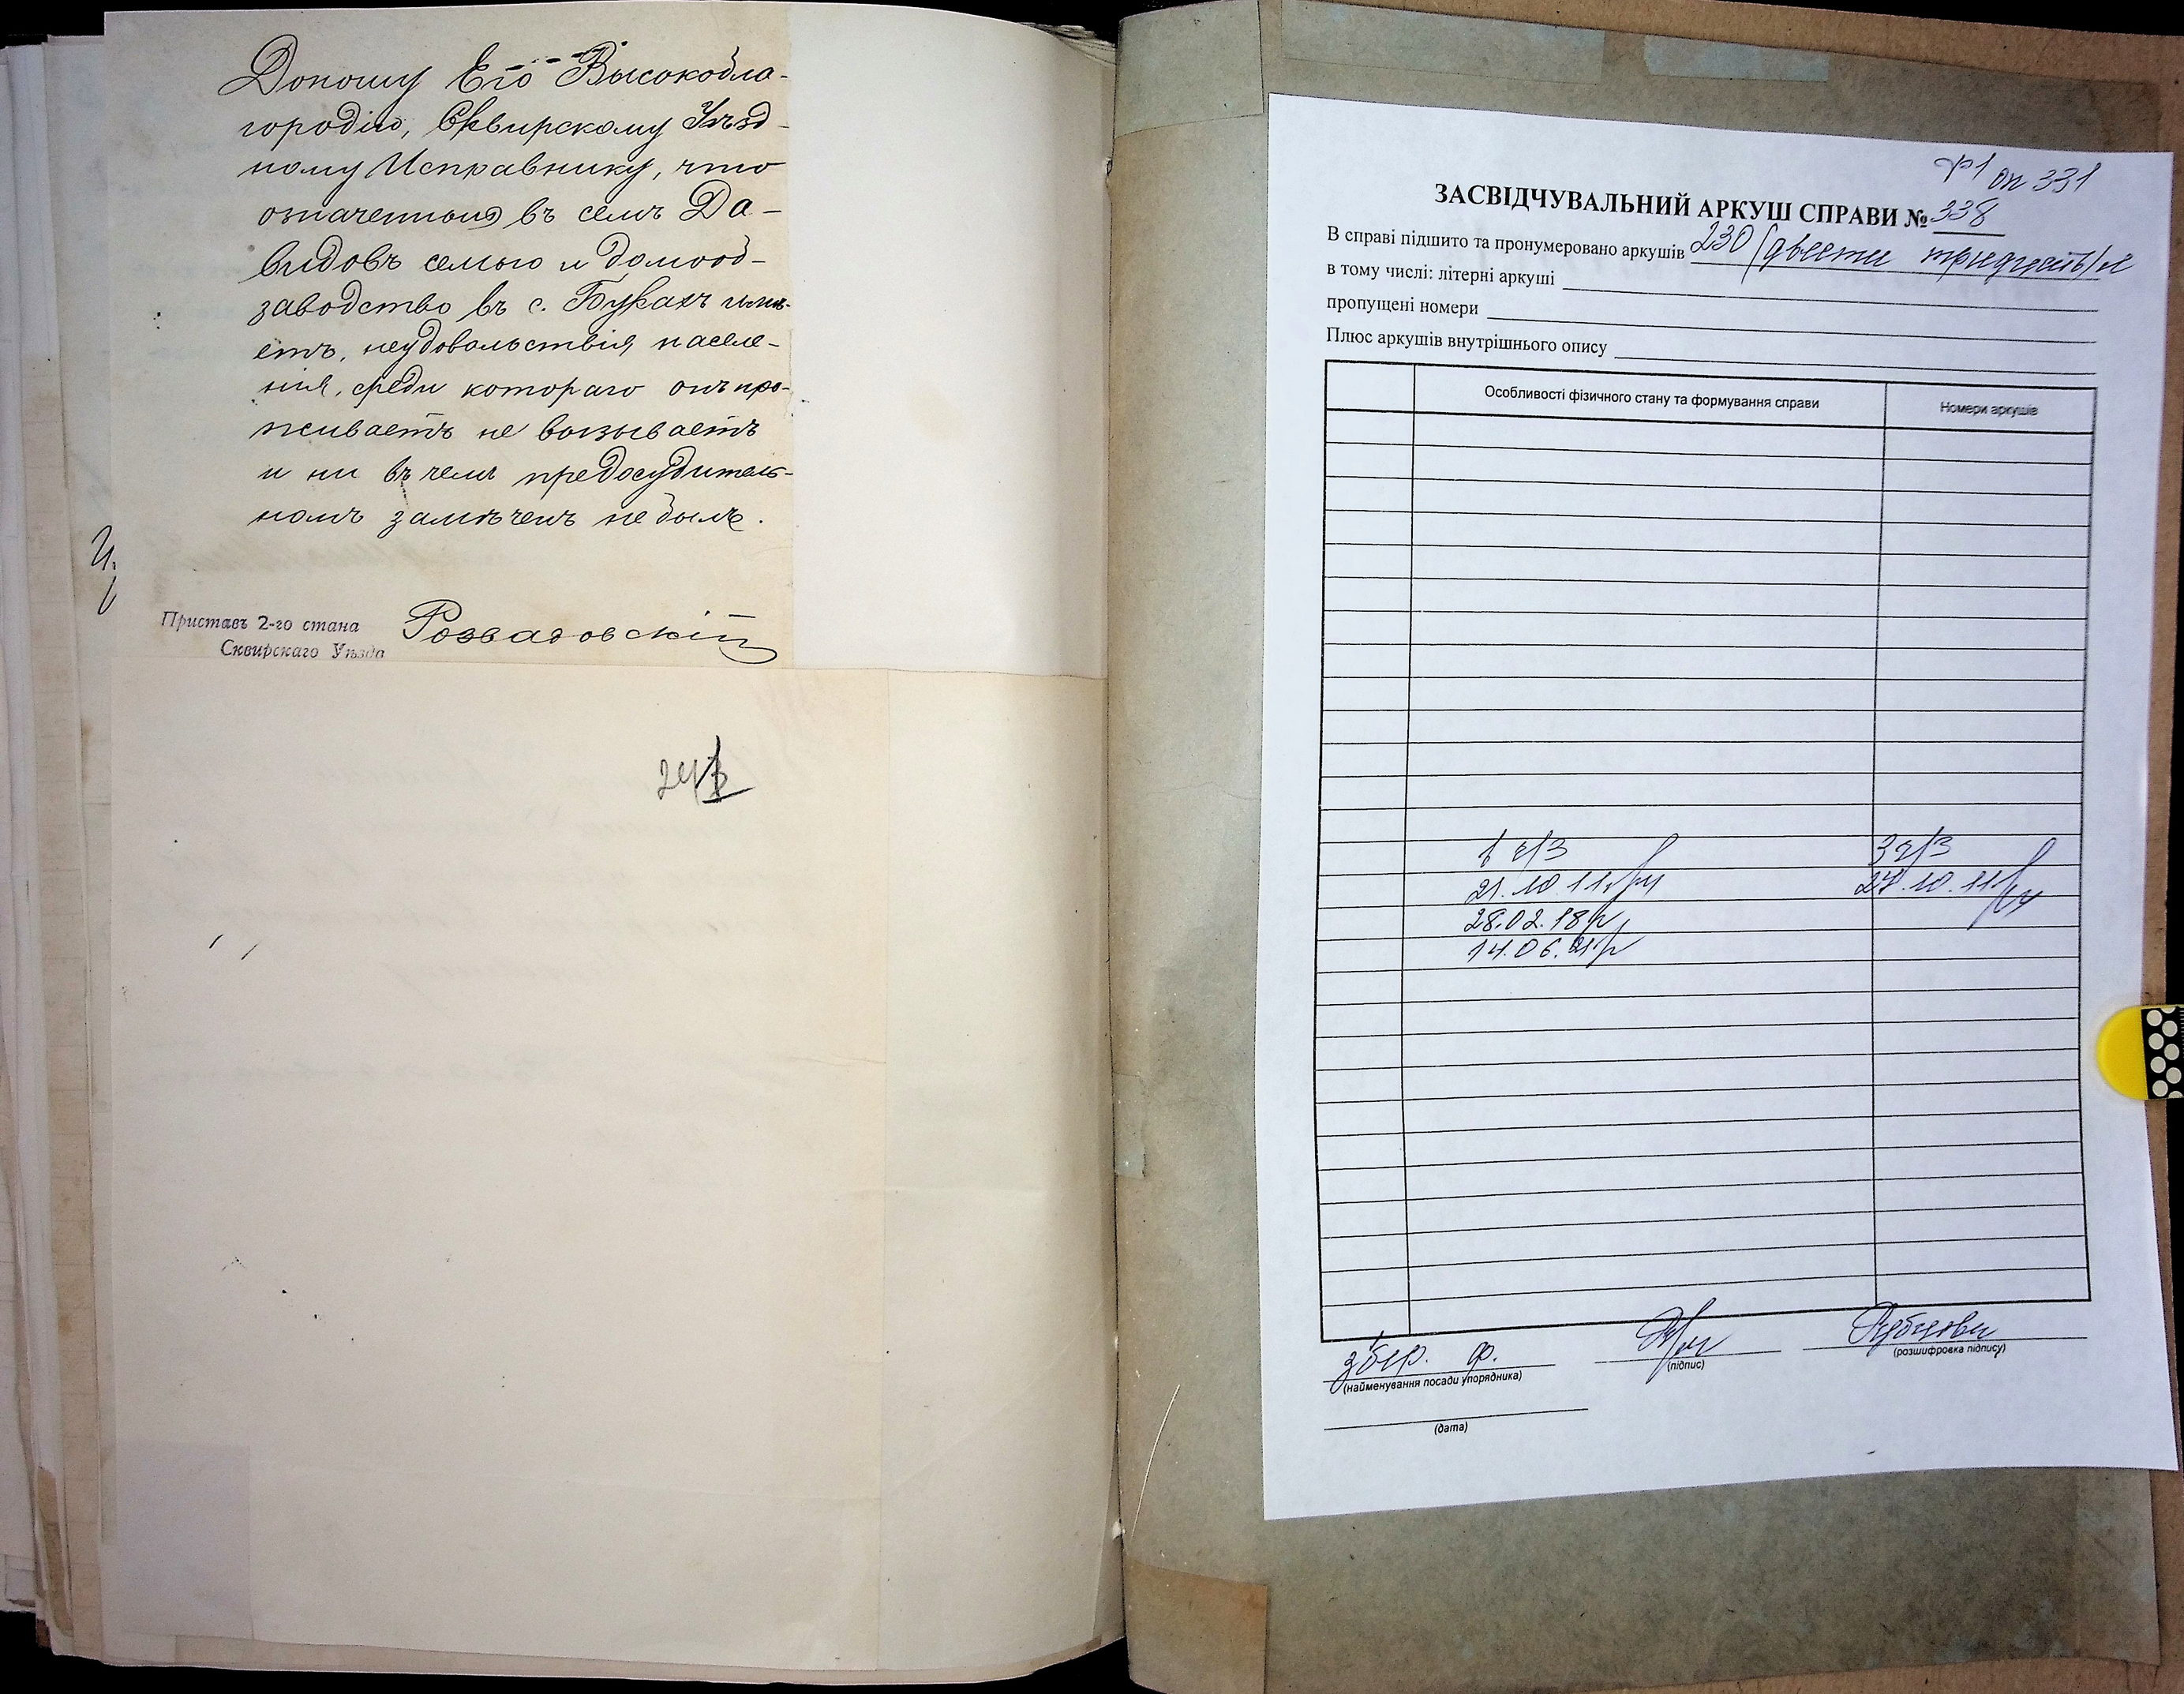 Доношу Его Высокобла-
городію, Сквирскому Уѣзд-
ному Исправнику, что
означенный въ семъ Да-
видовъ семью и домооб-
заводство въ с. Букахъ имѣ-
етъ, неудовольствія населе-
нія, среди котораго онъ про-
живаетъ не вызываетъ
и ни въ чемъ предосудитель-
номъ замѣченъ не былъ.
Приставъ 2-го стана
Сквирскаго Уѣзда
Розвадовскій
оп 331
ЗАСВІДЧУВАЛЬНИЙ АРКУШ СПРАВИ № 338
В справі підшито та пронумеровано аркушів 230 (двести тридцать)
в тому числі: літерні аркуші
пропущені номери
Плюс аркушів внутрішнього опису
Особливості фізичного стану та формування справи
Номери аркушів
ч/з
ч/з
21.10.11
28.02.18р
14.06.21р
збер. ф.
(найменування посади упорядника)
(підпис)
(розшифровка підпису)
(дата)